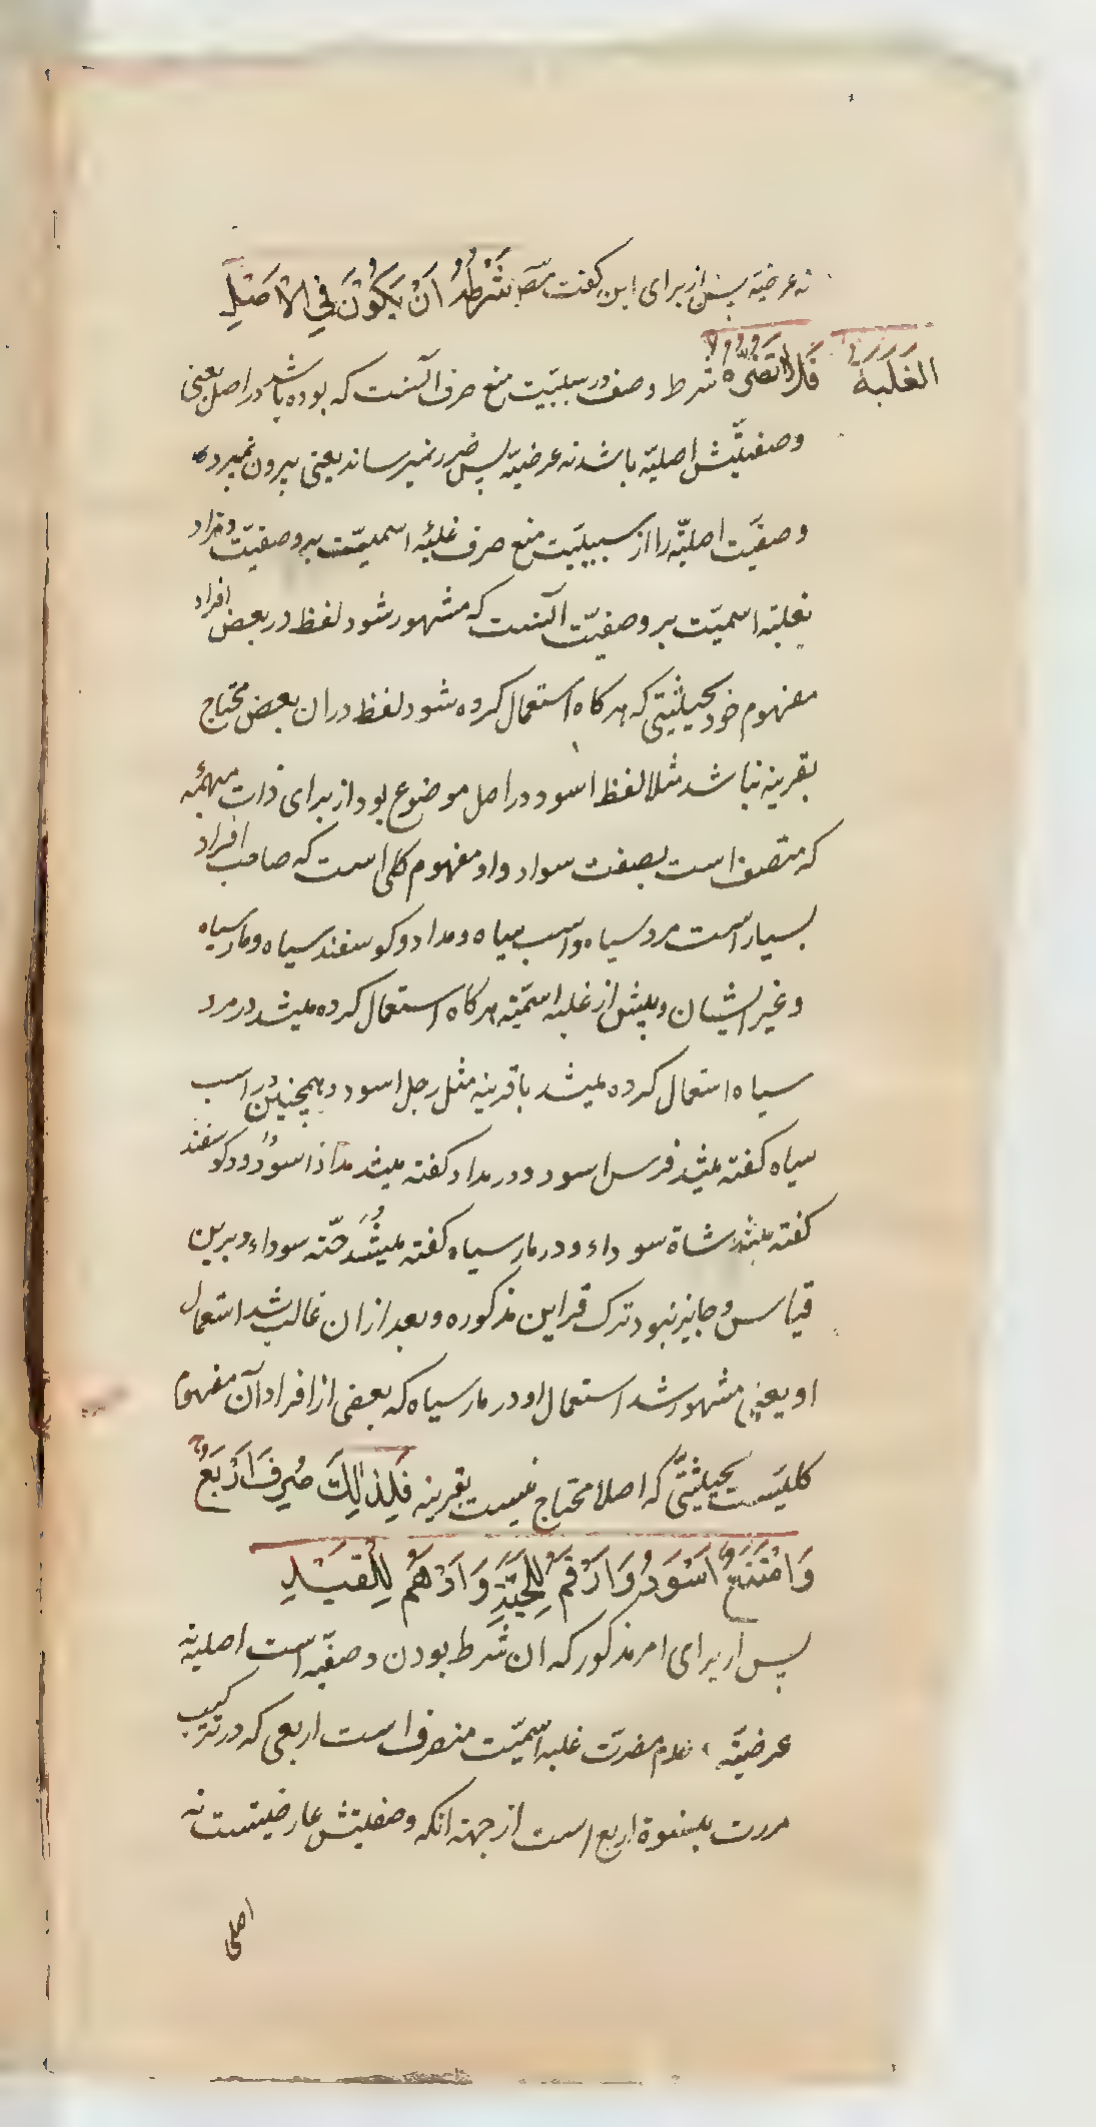 نه عرضیّه پس از برای این گفت مص شَرْطُهُ اَنْ یَکُوْنَ فِی الْاَصْلِ
فَلَا تَضُرُّهُ الغَلَبَة شرط وصف در سببیّت منع صرف آنست که بوده باشد در اصل یعنی
وصفیّتش اصلیّه باشد نه عرضیّه پس ضرر نمیرساند یعنی بیرون نمیبرد
وصفیّت اصلیّه را از سببیّت منع صرف غلبهٔ اسمیّت بر وصفیّت و مراد
بغلبه اسمیّت بر وصفیّت آنست که مشهور شود لفظ در بعض افراد
مفهوم خود بحیثیّتی که هرکاه استعمال کرده شود لفظ در ان بعض محتاج
بقرینه نباشد مثلا لفظ اسود در اصل موضوع بود از برای ذات مبهمه
که متصف است بصفت سواد و او مفهوم کلی است که صاحب افراد
بسیار است مرد سیاه و اسب سیاه و مداد و کوسفند سیاه و مار سیاه
و غیر ایشان و پیش از غلبه اسمیّه هرکاه استعمال کرده میشد در مرد
سیاه استعمال کرده میشد با قرینه مثل رجل اسود و همچنین در اسب
سیاه کفته میشد فرس اسود و در مداد کفته میشد مداد اسود و در کوسفند
کفته میشد شاة سوداء و در مار سیاه کفته میشد حیّه سوداء و برین
قیاس و جایز نبود ترک قراین مذکوره و بعد از ان غالب شد استعمال
او یعنی مشهور شد استعمال او در مار سیاه که بعضی از افراد آن مفهوم
کلیست بحیثیّتی که اصلا محتاج نیست بقرینه فَلِذٰلِكَ صُرِفَ اَرْبَعٌ
وَامْتَنَعَ اَسْوَدُ وَاَرْقَمُ لِلْحَیَّةِ وَاَدْهَمُ لِلْقَیْدِ
پس از برای امر مذکور که ان شرط بودن وصفیّه است اصلیه نه
عرضیّه و عدم مضرت غلبه اسمیّت منصرف است اربعی که در ترکیب
مررت بنسوة اربع است از جهة انکه وصفیتش عارضیست نه
اصلی